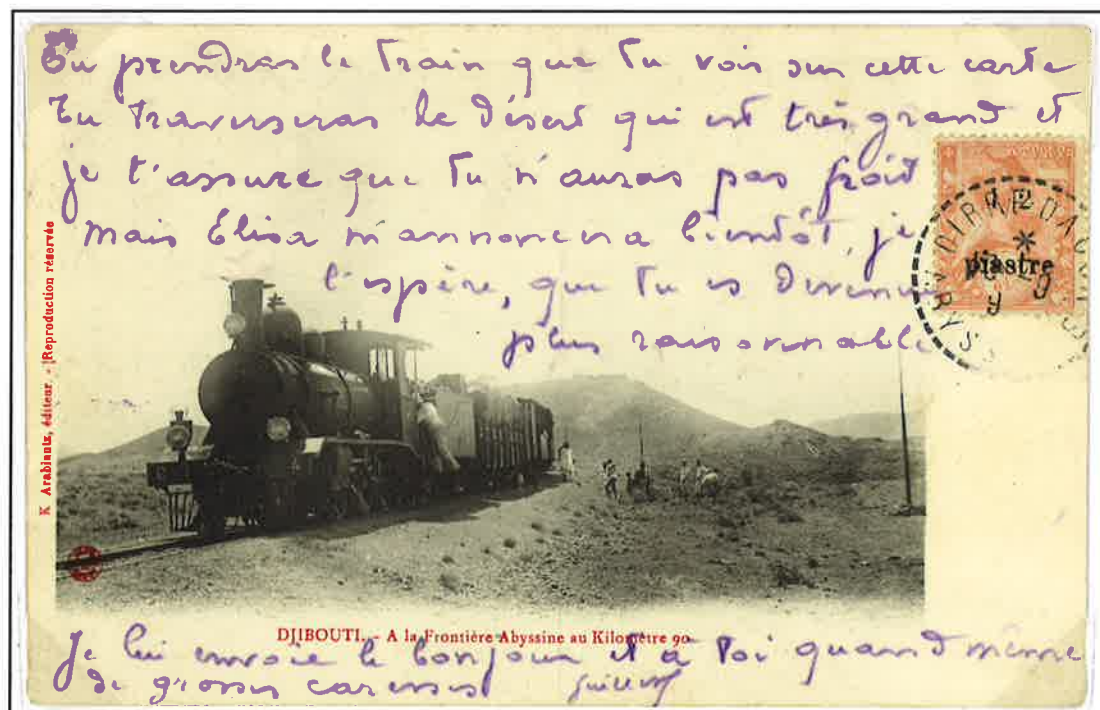 Tu prendras le train que tu vois sur cette carte
Tu traverseras le désert qui est très grand et
je t'assure que tu n'auras pas froid
mais Elisa m'annoncera bientôt, je
l'espère, que tu es devenu
plus raisonnable
K Arabiantz, éditeur. - Reproduction réservée
1 2
piastre
DIRRÉ DAOUA
DJIBOUTI. - A la Frontière Abyssine au Kilomètre 90
Je lui envoie le bonjour et à toi quand même
de grosses caresses